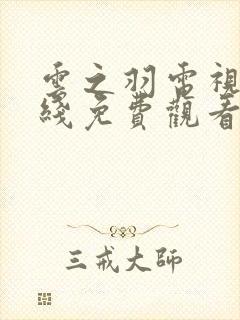 雲之羽電視
綫免費觀看
三戒大師